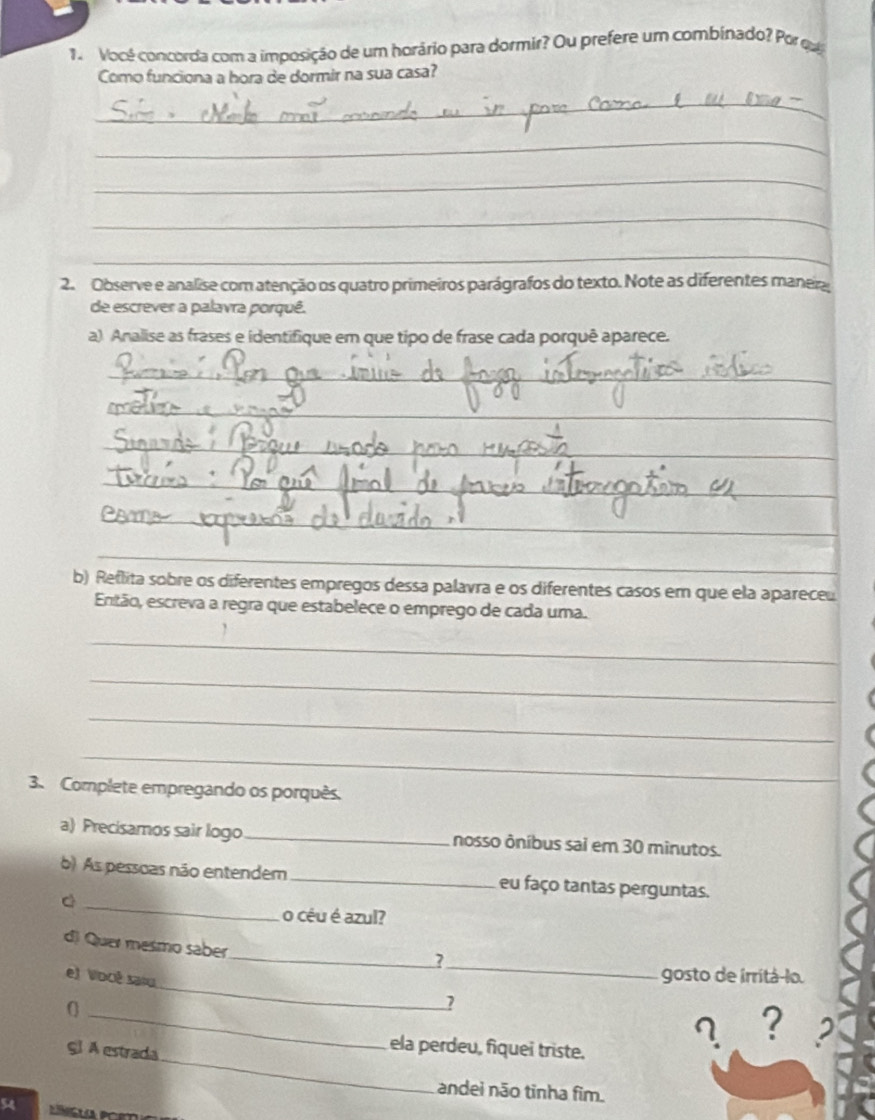 1. Você concorda com a imposição de um horário para dormir? Ou prefere um combinado? Por que
Como funciona a hora de dormir na sua casa?
Sim. Minha mãe manda eu ir para cama e eu
2. Observe e analise com atenção os quatro primeiros parágrafos do texto. Note as diferentes maneiras
de escrever a palavra porquê.
a) Analise as frases e identifique em que tipo de frase cada porquê aparece.
Por que início de interrogativa
Segundo: Porque usado para resposta
: Por quê final de
como de
b) Reflita sobre os diferentes empregos dessa palavra e os diferentes casos em que ela apareceu
Então, escreva a regra que estabelece o emprego de cada uma.
3. Complete empregando os porquês.
a) Precisamos sair logo nosso ônibus sai em 30 minutos.
b) As pessoas não entendem eu faço tantas perguntas.
c) o céu é azul?
d) Quer mesmo saber ? gosto de irritá-lo.
e) Você saiu ?
f) ela perdeu, fiquei triste.
g) A estrada andei não tinha fim.
? ? ?
54